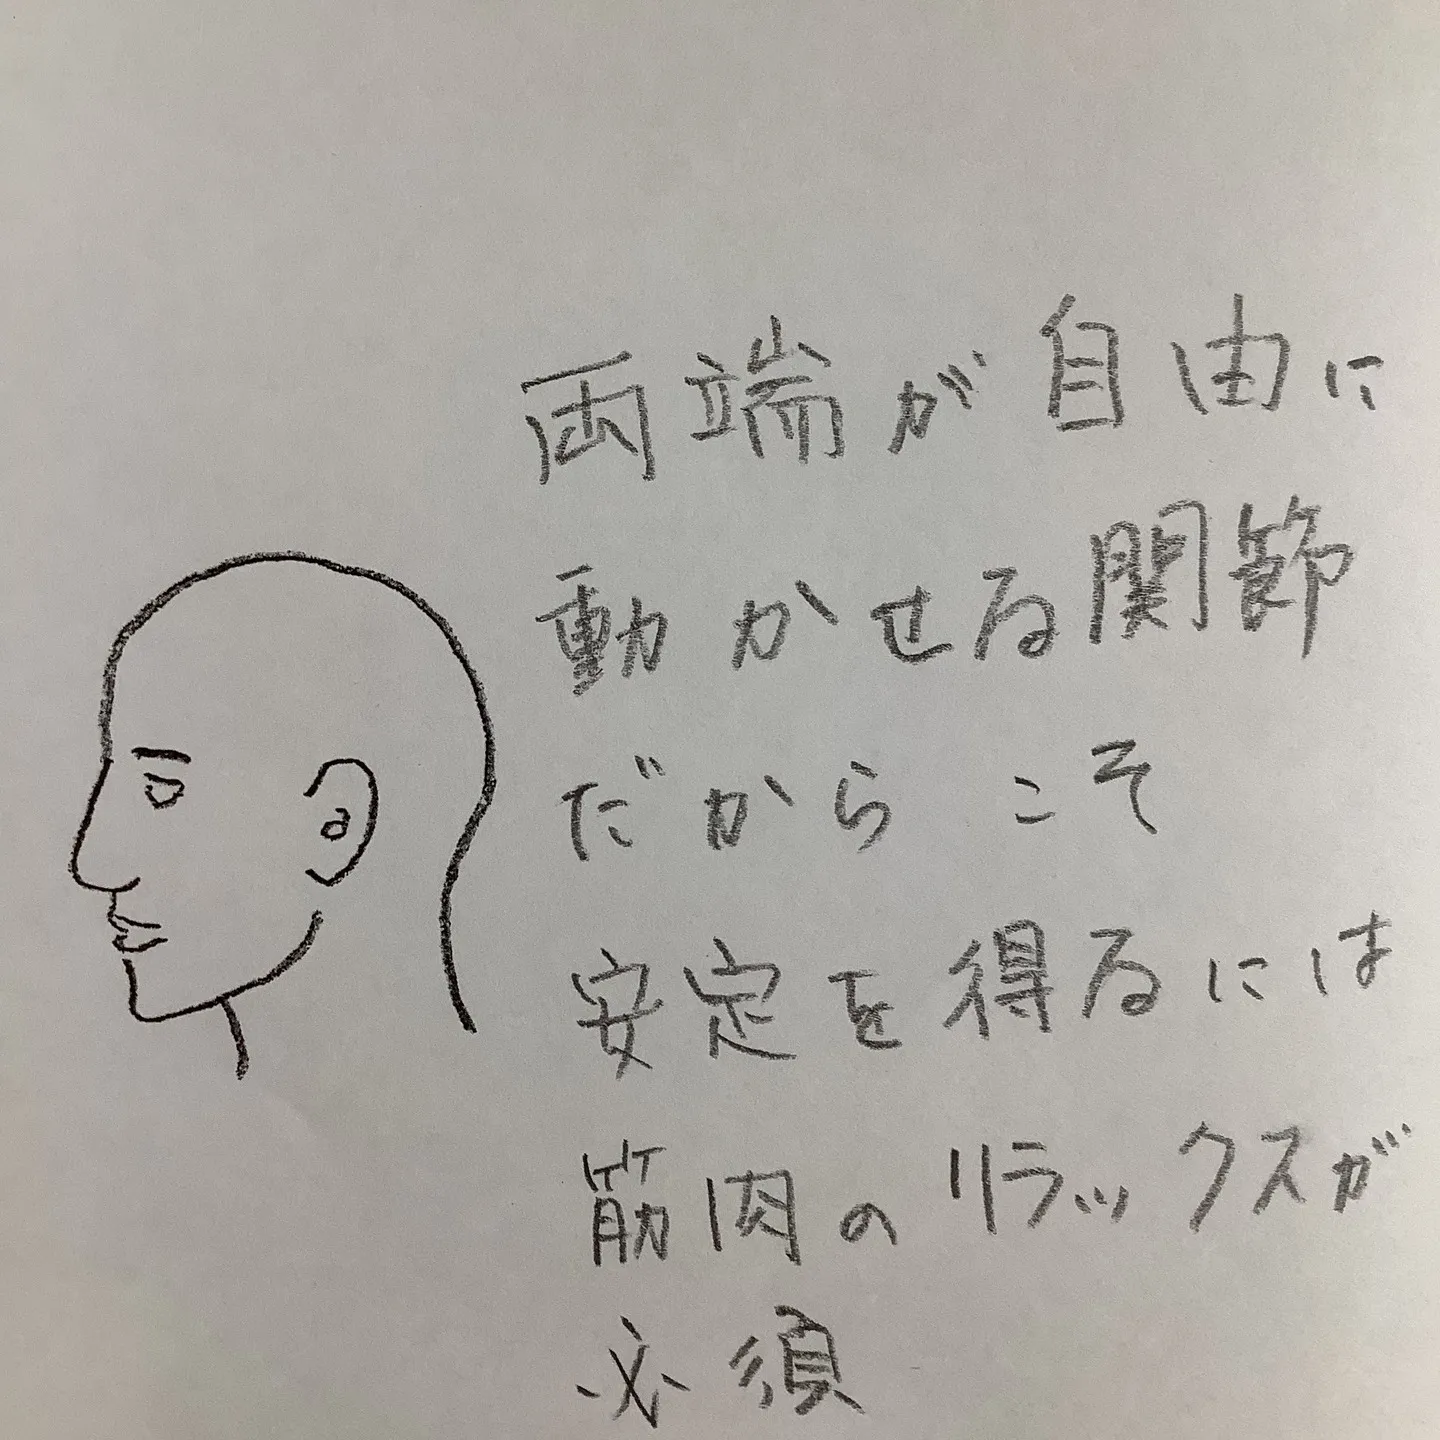 両端が自由に
動かせる関節
だからこそ
安定を得るには
筋肉のリラックスが
必須